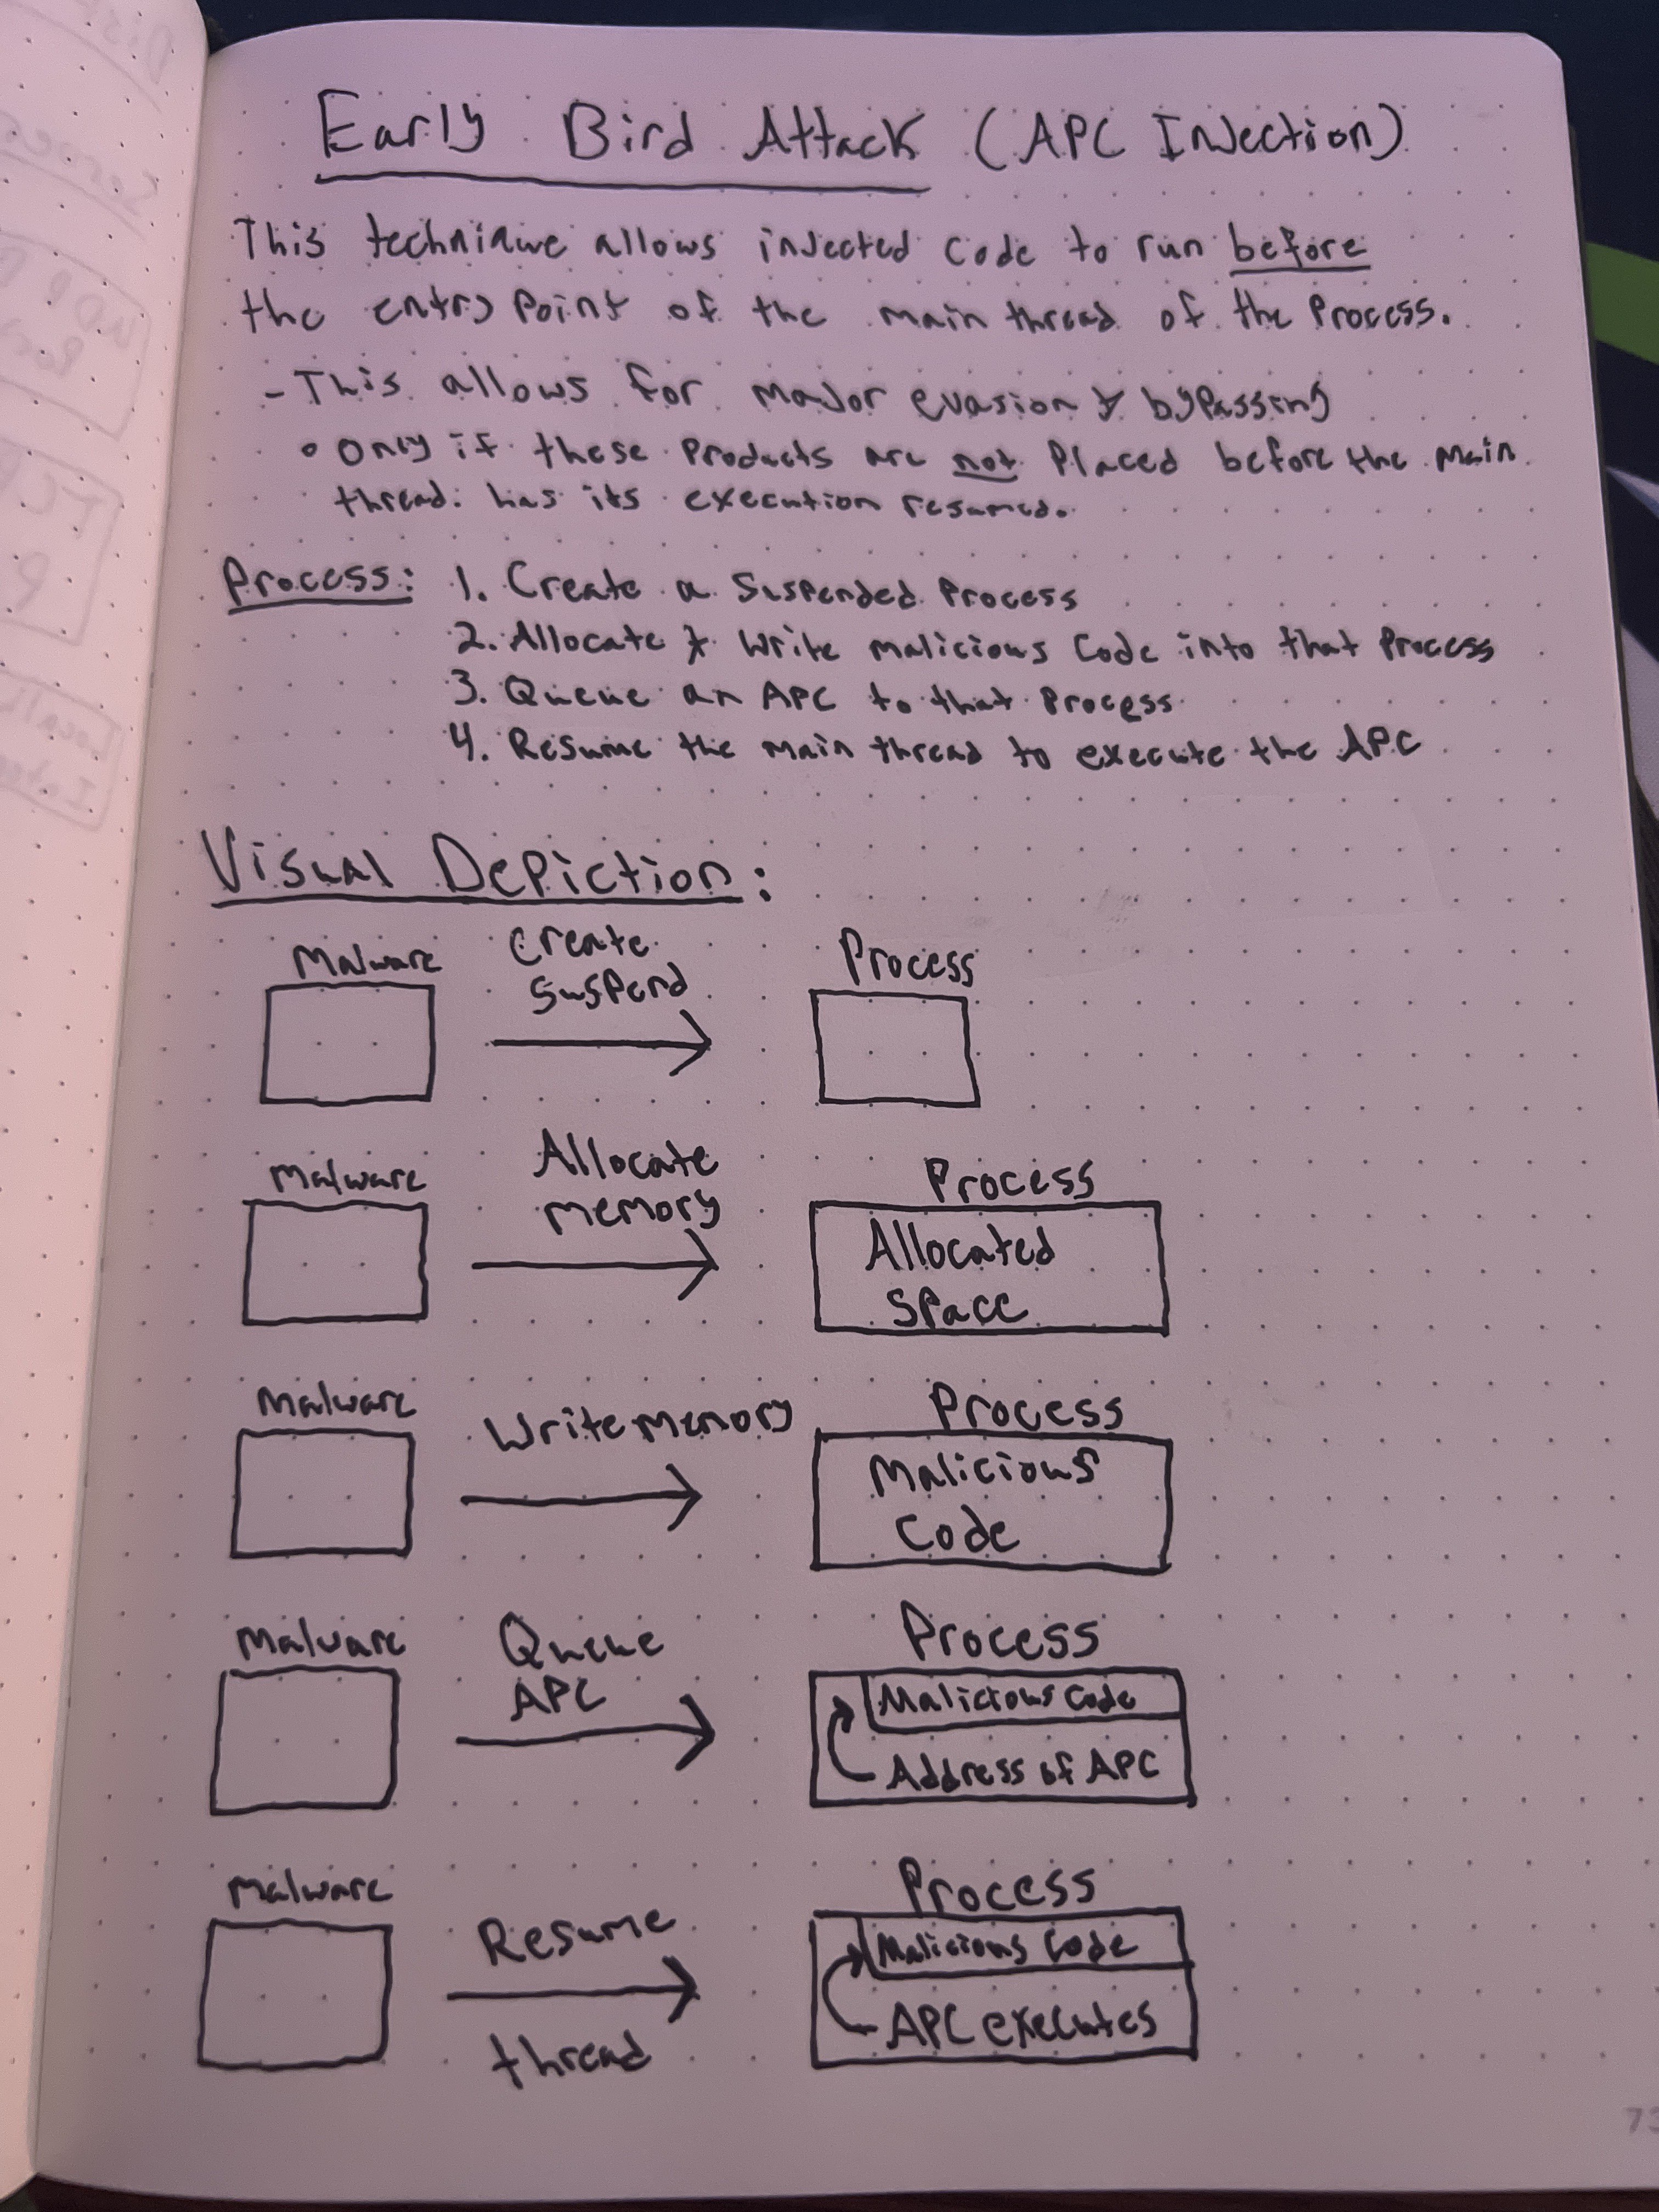 Early Bird Attack (APC Injection)
This technique allows injected code to run before
the entry point of the main thread of the process.
- This allows for major evasion & bypassing
◦ Only if these products are not placed before the main
thread has its execution resumed.
Process: 1. Create a Suspended Process
2. Allocate & Write malicious code into that process
3. Queue an APC to that process
4. Resume the main thread to execute the APC
Visual Depiction:
Malware
Create
suspend
Process
Malware
Allocate
memory
Process
Allocated
Space
Malware
Write memory
Process
Malicious
Code
Malware
Queue
APC
Process
Malicious Code
Address of APC
Malware
Resume
thread
Process
Malicious Code
APC executes